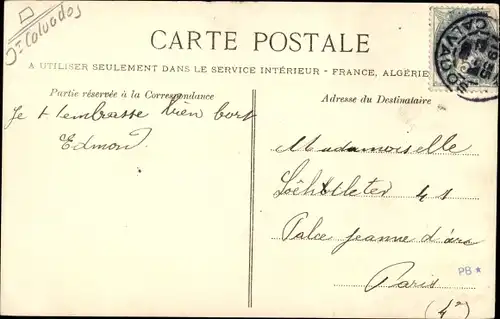 Dt Calvados
CARTE POSTALE
CALVADOS
A UTILISER SEULEMENT DANS LE SERVICE INTÉRIEUR - FRANCE, ALGÉRIE
Partie réservée à la Correspondance
Adresse du Destinataire
Je t'embrasse bien fort
Edmond
Mademoiselle
41
Palce jeanne d'arc
Paris
PB *